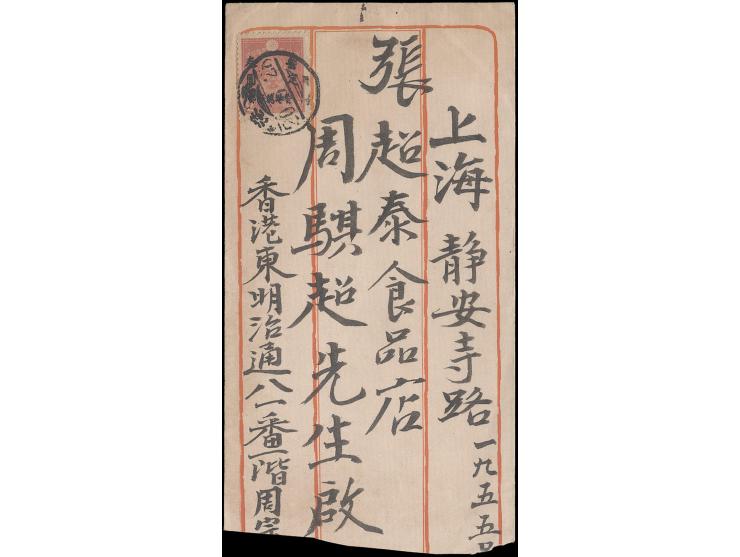 上海靜安寺路一九五五
張超泰食品店
周騏超先生啟
香港東明治通八一番一階周宗